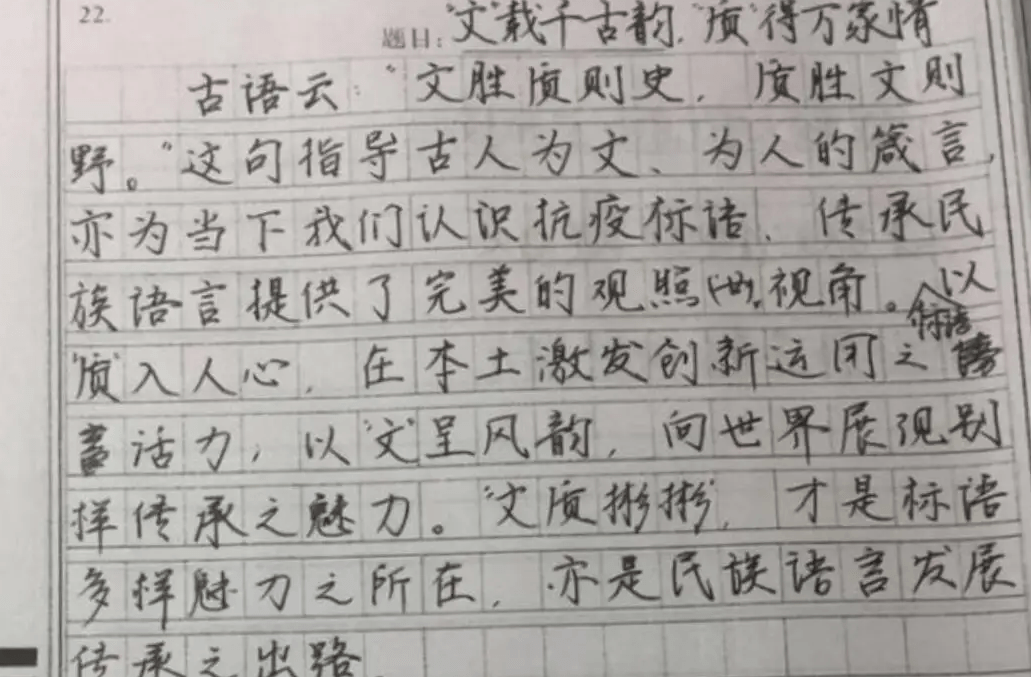 22.
题目:"文"载千古韵,"质"得万家情
古语云:"文胜质则史,质胜文则
野。"这句指导古人为文、为人的箴言,
亦为当下我们认识抗疫标语、传承民
族语言提供了完美的观照视角。以
标语
"质"入人心,在本土激发创新运用之
活力,以"文"呈风韵,向世界展现别
样传承之魅力。"文质彬彬",才是标语
多样魅力之所在,亦是民族语言发展
传承之出路